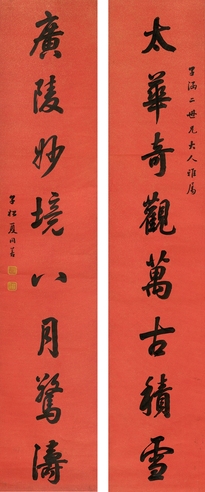 太華奇觀萬古積雪
子涵二世兄大人雅屬
廣陵妙境八月驚濤
子松夏同善